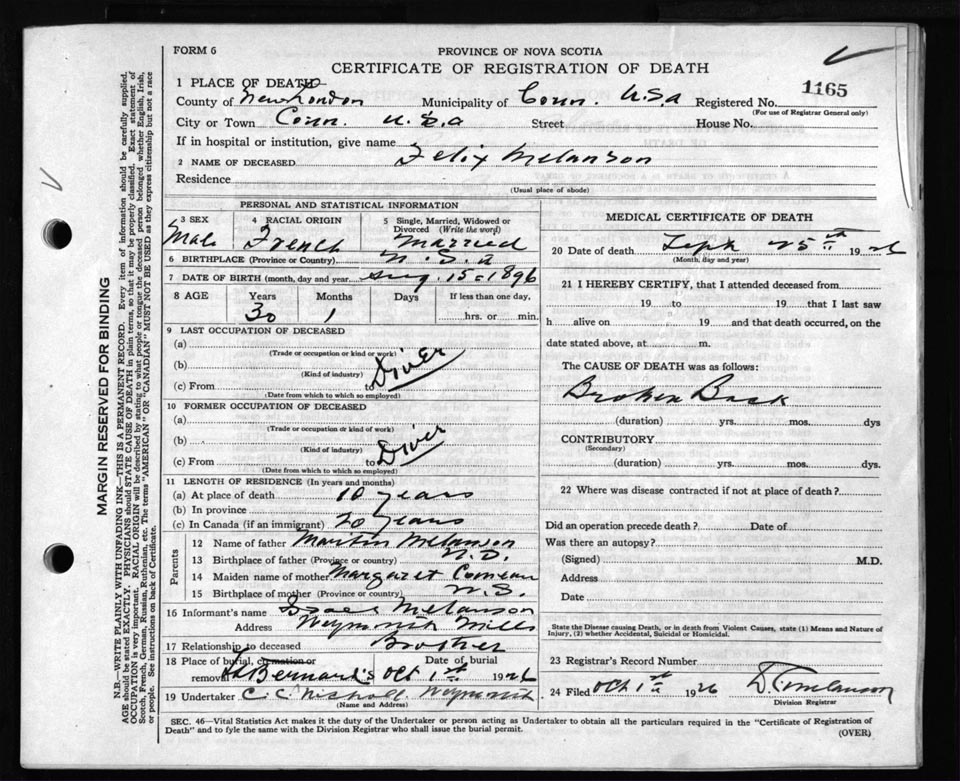 FORM 6
PROVINCE OF NOVA SCOTIA
CERTIFICATE OF REGISTRATION OF DEATH
1 PLACE OF DEATH
County of New London Municipality of Conn. U.S.a Registered No. 1165
(For use of Registrar General only)
City or Town Conn. U.S.a Street House No.
If in hospital or institution, give name
2 NAME OF DECEASED Felix Melanson
Residence
(Usual place of abode)
PERSONAL AND STATISTICAL INFORMATION
3 SEX Male
4 RACIAL ORIGIN French
5 Single, Married, Widowed or Divorced (Write the word) Married
6 BIRTHPLACE (Province or Country)
7 DATE OF BIRTH (month, day and year) Aug. 15 - 1896
8 AGE Years Months Days If less than one day,
30 1 hrs. or min.
9 LAST OCCUPATION OF DECEASED
(a)
(Trade or occupation or kind or work)
(b)
(Kind of industry)
(c) From to Diver
(Date from which to which so employed)
10 FORMER OCCUPATION OF DECEASED
(a)
(Trade or occupation or kind of work)
(b)
(Kind of industry)
(c) From to Diver
(Date from which to which so employed)
11 LENGTH OF RESIDENCE (In years and months)
(a) At place of death 10 years
(b) In province
(c) In Canada (if an immigrant) 20 years
Parents
12 Name of father Martin Melanson
13 Birthplace of father (Province or country)
14 Maiden name of mother Margaret Comeau
15 Birthplace of mother (Province or country) N.S.
16 Informant's name Isaac Melanson
Address Weymouth Mills
17 Relationship to deceased Brother
18 Place of burial, cremation or removal St Bernard's Date of burial Oct 1st 1926
19 Undertaker C. C. Nichols Weymouth
(Name and Address)
MEDICAL CERTIFICATE OF DEATH
20 Date of death Sept 25th 1926
(Month, day and year)
21 I HEREBY CERTIFY, that I attended deceased from
19 to 19 that I last saw
h alive on 19 and that death occurred, on the
date stated above, at m.
The CAUSE OF DEATH was as follows:
Broken Back
(duration) yrs. mos. dys
CONTRIBUTORY
(Secondary)
(duration) yrs. mos. dys.
22 Where was disease contracted if not at place of death?
Did an operation precede death? Date of
Was there an autopsy?
(Signed) M.D.
Address
Date
State the Disease causing Death, or in death from Violent Causes, state (1) Means and Nature of
Injury, (2) whether Accidental, Suicidal or Homicidal.
23 Registrar's Record Number
24 Filed Oct 1st 1926
Division Registrar
SEC. 46—Vital Statistics Act makes it the duty of the Undertaker or person acting as Undertaker to obtain all the particulars required in the "Certificate of Registration of
Death" and to fyle the same with the Division Registrar who shall issue the burial permit.
(OVER)
MARGIN RESERVED FOR BINDING
N.B.—WRITE PLAINLY WITH UNFADING INK—THIS IS A PERMANENT RECORD. Every item of information should be carefully supplied.
AGE should be stated EXACTLY. PHYSICIANS should STATE CAUSE OF DEATH in plain terms, so that it may be properly classified. Exact statement of
OCCUPATION is very important. RACIAL ORIGIN will be described by stating to what people or tongue the deceased person belonged whether English, Irish,
Scotch, French, German, Russian, Ruthenian, etc. The terms "AMERICAN" OR "CANADIAN" MUST NOT BE USED as they express citizenship but not a race
or people. See instructions on back of Certificate.